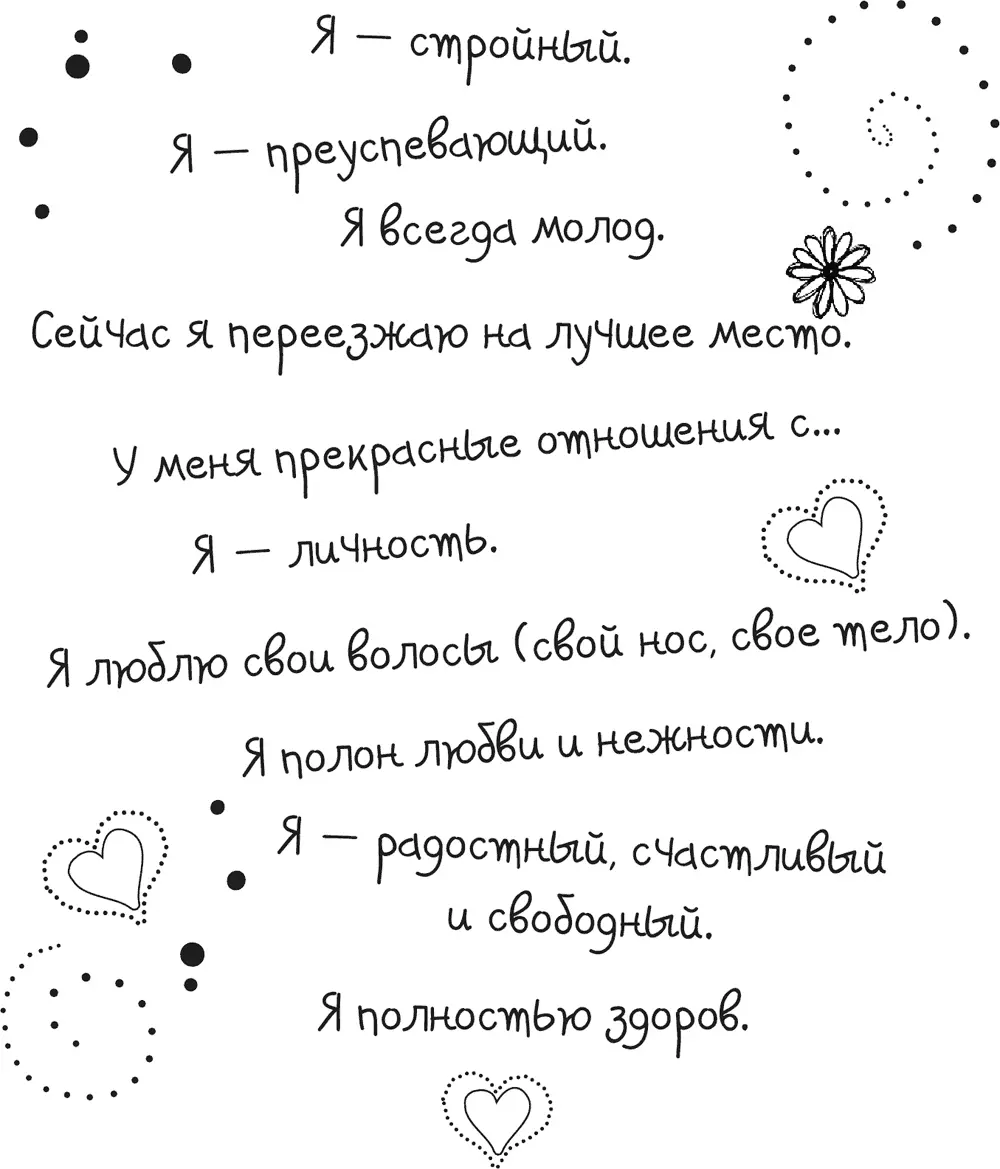 Я — стройный.
Я — преуспевающий.
Я всегда молод.
Сейчас я переезжаю на лучшее место.
У меня прекрасные отношения с...
Я — личность.
Я люблю свои волосы (свой нос, свое тело).
Я полон любви и нежности.
Я — радостный, счастливый
и свободный.
Я полностью здоров.